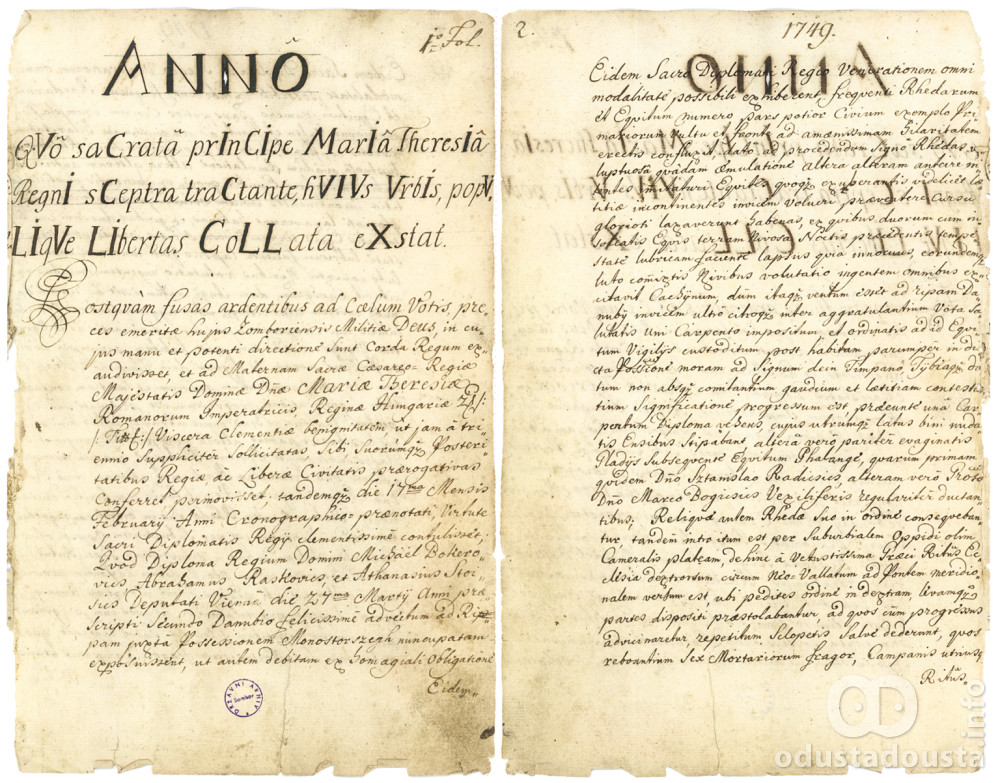 1º Fol.
ANNÔ
QVô saCratâ prInCIpe MarIâ TheresIâ
RegnI sCeptra traCtante, hVIVs VrbIs, popV,
LIqVe LIbertas CoLLata eXstat.
Postquàm fusas ardentibus ad Cœlum Votis, pre,,
ces emeritæ hujus Zomboriensis Militiæ Deus, in cu,,
jus manu et potenti directione sunt Corda Regum ex,,
audivisset, et ad Maternam Sacræ Cæsareo-Regiæ
Majestatis Dominæ Dñæ Mariæ Theresiæ
Romanorum Imperatricis, Reginæ Hungariæ
Viscera Clementiæ benignitatem ut jam à tri,,
ennio Suppliciter Sollicitatas, Sibi Suorumq3 Posteri,,
tatibus Regiæ, ac Liberæ Civitatis prærogativas
Conferret permovisset; tandemq3 die 17ma Mensis
February Anni Cronographicò-prænotati, Virtute
Sacri Diplomatis Regij clementissime contulisset;
Quod Diploma Regium Domini Michäel Bokero,,
vics, Abrahamus Raskovics, et Athanasius Stoi,,
sics Deputati Vienna die 27ma Marty Anni præ,,
scripti Secundo Danubio felicissimè advectum ad Ri,,
pam juxta Possessionem Monostorszegh nuncupatam
exposuissent, ut autem debitam ex Homagiali Obligatione
Eidem,,
DRŽAVNI ARHIV
Sombor
2.
1749.
Eidem Sacro Diplomati Regio Venerationem omni
modalitate possibili exhiberent, frequenti Rhedarum
et Equitum numero pars potior Civium exemplo Pri,,
mariorum vultu et fronte ad amænissimam Hilaritatem
erectis confluxit, dato ad procedendum Signo Rhedas, vo,,
luptuosa quadam æmulatione altera alteram anteire in,,
tentes imitaturi Equites quoq3 exuberantis videlicet læ,,
titiæ incontinentes invicem Volucri prævertere Cursu
glorioti laxaverunt habenas, ex quibus duorum cum in,,
solratis Equis terram Nivosa Noctis præcedentis tempe,,
state lubricam faciente lapsus quia innocuus, eorundemq3
luto commixtis Nivibus volutatio ingentem omnibus ex,,
citavit Cachynum, dum itaq3 ventum esset ad ripam Da,,
nuby invicem ultrò citroq3 inter aggratulantium Vota Sa,,
lutatis Uni Carpento impositum et ordinatis ad id Equi,,
tum Vigilijs custoditum post habitam parumper in di,,
cta Possessione moram ad Signum dein Timpano, Tybiaq3 da,,
tum non absq3 comitantium gaudium et lætitiam contesta,,
tium Significatione progressum est præeunte unâ Car,,
pentum Diploma vehens, cujus utrumq3 latus bini nuda,,
tis Ensibus Stipabant, alterâ verò pariter evaginatis
Gladijs Subsequente Equitum Phalange, quarum primam
quidem Dño Stanislao Radisics, alteram verò
Dño Marco Bogisics Vexiliferis regulariter ductan,,
tibus; Reliquæ autem Rhedæ suo in ordine consequeban,,
tur, tandem introitum est per Suburbialem Oppidi olim
Cameralis plateam, dehinc â Vetustissima Græci Ritûs Ec,,
clesia dextrorsum circum Néo-Vallatum ad Pontem meridio,,
nalem versum est, ubi pedites ordine in dextram lævamq3
partes dispositi præstolabantur, ad quos cùm progressus
advicinaretur, repetitum Sclopetis Salve dederunt, quos
reboantium Sex Mortariorum fragor, Campanis utrius,,
Ritûs,,
odustadousta
.info